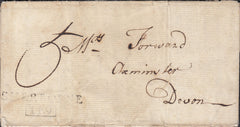 5 Mrs Forward
Axminster
Devon